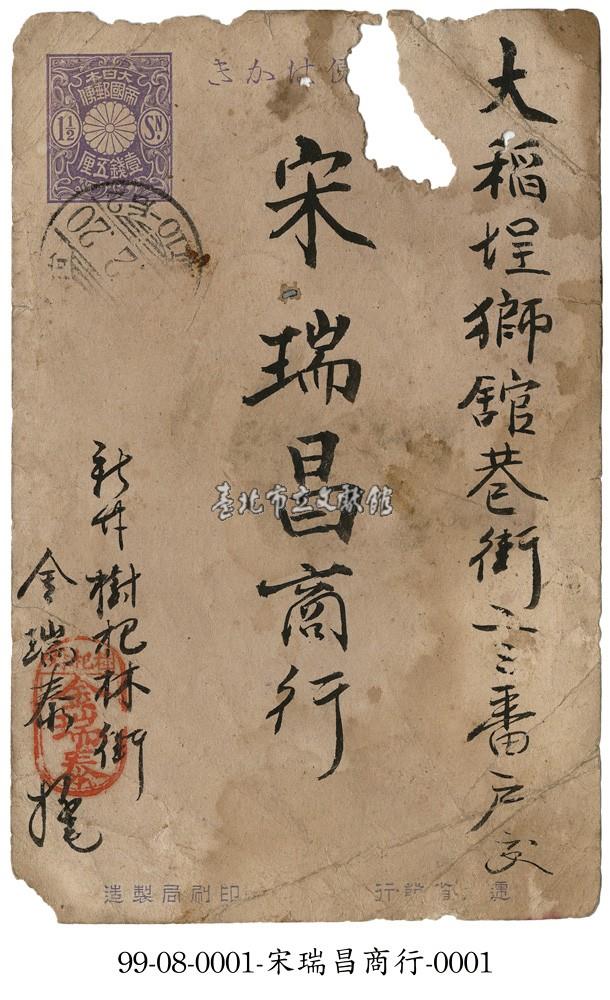 便はかき
大日本
帝國郵便
1½ SN.
壹錢五厘
大稻埕獅舘巷街二三番戶交
宋瑞昌商行
新竹樹杞林街
金瑞泰
金瑞泰
臺北市立文獻館
印刷局製造
99-08-0001-宋瑞昌商行-0001